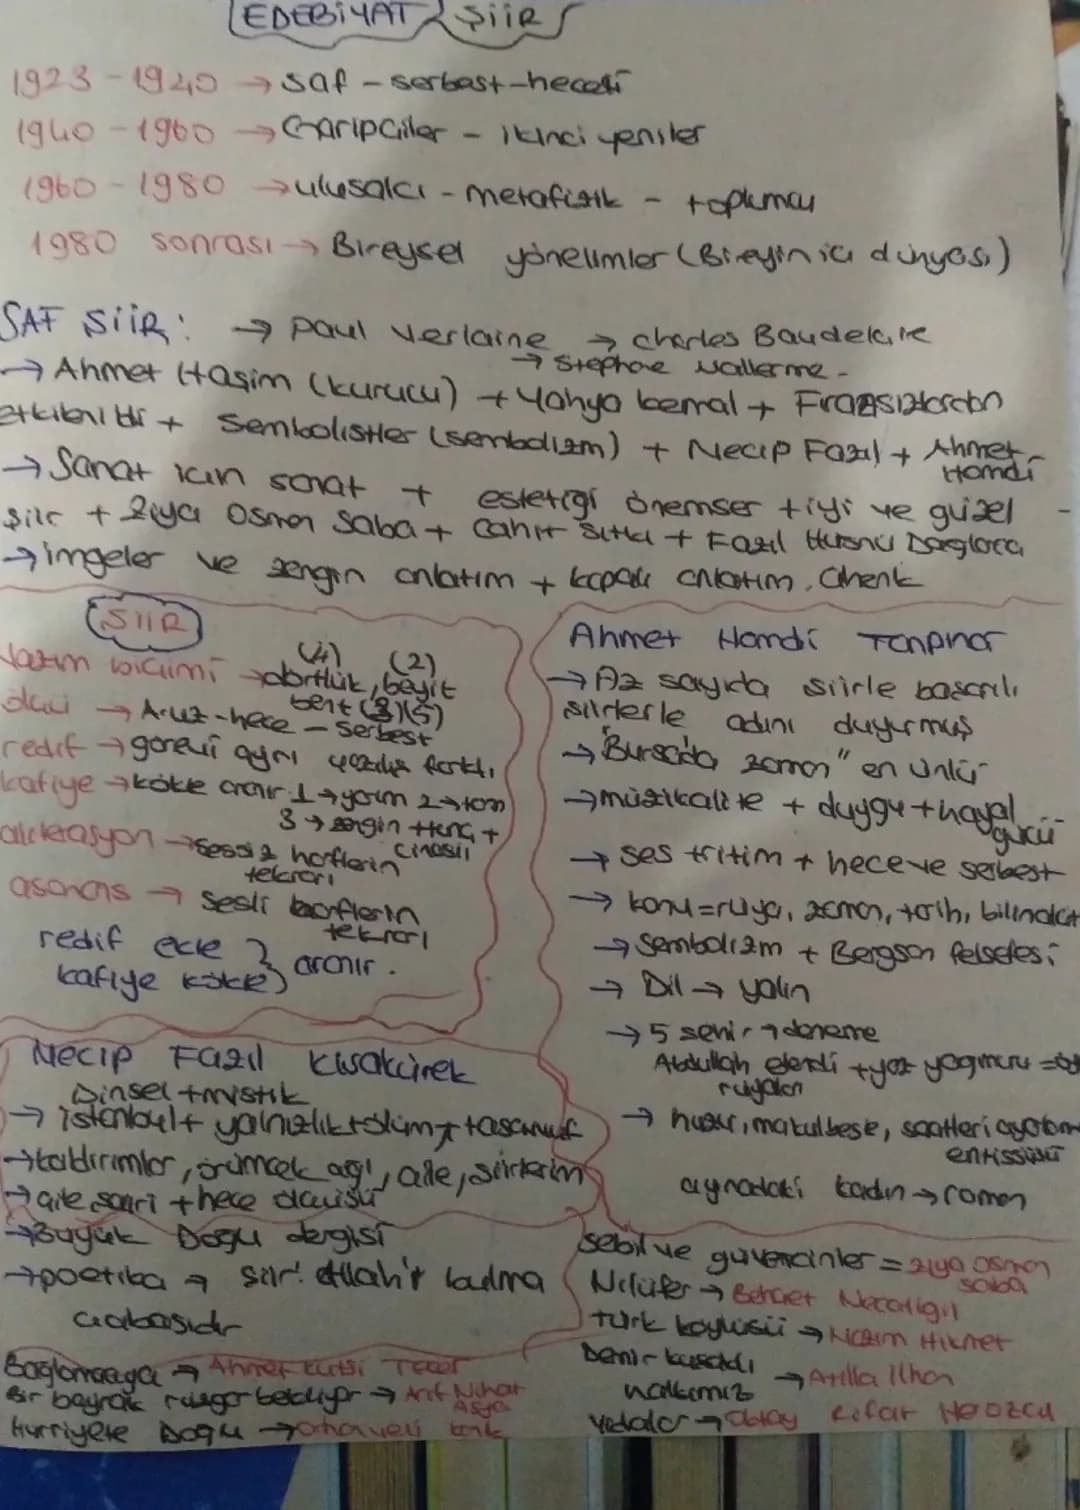 EDEBİYAT ŞİİR
1923 - 1940 → saf - serbest - heceli
1940 - 1960 → Garipçiler - ikinci yeniler
1960 - 1980 → ulusalcı - metafizik - toplumcu
1980 sonrası → Bireysel yönelimler (Bireyin iç dünyası)
SAF ŞİİR: → Paul Verlaine → Charles Baudelaire
→ Stephane Mallerme -
→ Ahmet Haşim (kurucu) + Yahya kemal + Fransızlardan
etkilenildi + Sembolistler (sembolizm) + Necip Fazıl + Ahmet Hamdi
→ Sanat için sanat + estetiği önemser + iyi ve güzel
şiir + Ziya Osman Saba + Cahit Sıtkı + Fazıl Hüsnü Dağlarca
→ imgeler ve zengin anlatım + kapalı anlatım, Ahenk
ŞİİR
Nazım biçimi → dörtlük (4), beyit (2)
bent (3)(5)
ölçü → Aruz - hece - serbest
redif → görevi aynı yazılış farklı
kafiye → kökte aranır 1 → yarım 2 → tam
3 → zengin + tunç +
cinaslı
aliterasyon → sessiz harflerin
tekrarı
asonans → sesli harflerin
tekrarı
redif ekte
kafiye kökte } aranır.
Ahmet Hamdi Tanpınar
→ Az sayıda şiirle başarılı
şiirlerle adını duyurmuş
→ "Bursa'da zaman" en ünlü
→ müzikalite + duygu + hayal
gücü
→ ses + ritim + hece ve serbest
→ konu = rüya, zaman, tarih, bilinçaltı
→ sembolizm + Bergson felsefesi
→ Dil → yalın
→ 5 şehir → deneme
Abdullah efendi + yaz yağmuru =
rüyaları
→ huzur, mahur beste, saatleri ayarlama
enstitüsü
aynadaki kadın → roman
Necip Fazıl Kısakürek
Dinsel + mistik
→ istanbul + yalnızlık + ölüm + tasavvuf
→ kaldırımlar, örümcek ağı, çile, şiirlerim
→ çile şairi + hece ölçüsü
→ Büyük Doğu dergisi
→ poetika → şiir: Allah'ı bulma
çabasıdır
Sebil ve güvercinler = Ziya Osman
Saba
Nilüfer → Behçet Necatigil
Türk köylüsü → Nazım Hikmet
Demir kuşaklı
→ Atilla İlhan
Bağlamacıya → Ahmet Kutsi Tecer
Bir bayrak rüzgar bekliyor → Arif Nihat
Asya
Hürriyete Doğru → Orhan veli kanık
→ Oktay Rifat Horozcu